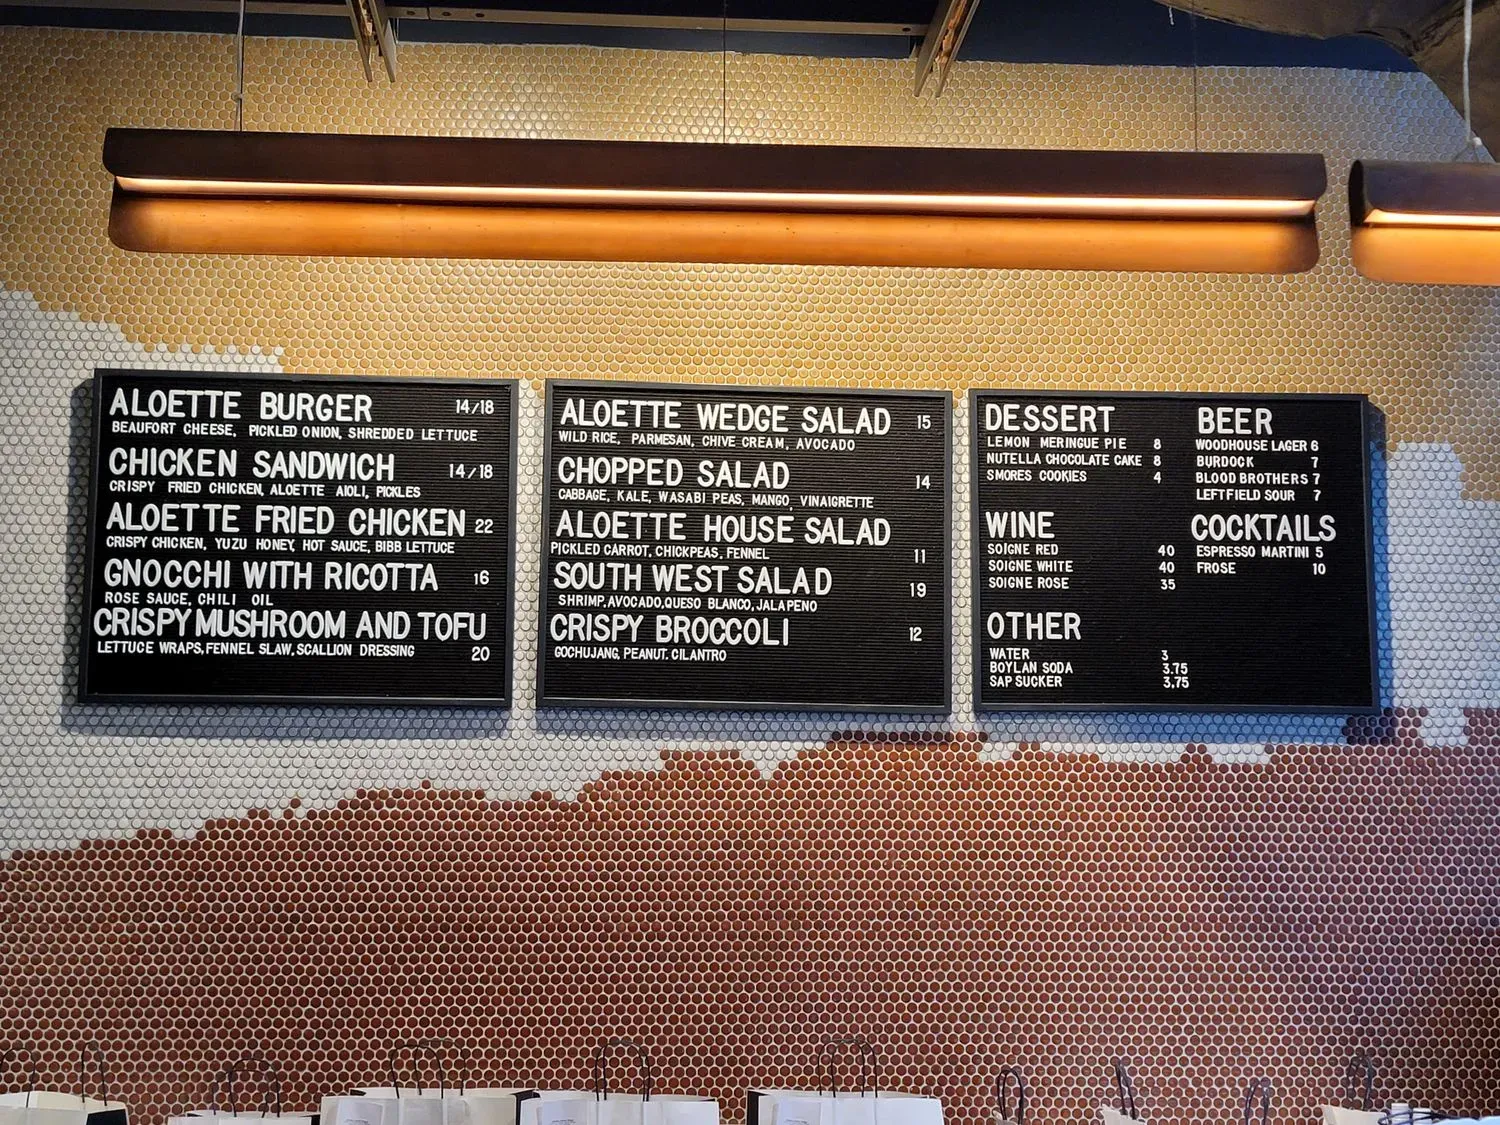 ALOETTE BURGER 14/18
BEAUFORT CHEESE, PICKLED ONION, SHREDDED LETTUCE
CHICKEN SANDWICH 14/18
CRISPY FRIED CHICKEN, ALOETTE AIOLI, PICKLES
ALOETTE FRIED CHICKEN 22
CRISPY CHICKEN, YUZU HONEY, HOT SAUCE, BIBB LETTUCE
GNOCCHI WITH RICOTTA 16
ROSE SAUCE, CHILI OIL
CRISPY MUSHROOM AND TOFU
LETTUCE WRAPS, FENNEL SLAW, SCALLION DRESSING 20
ALOETTE WEDGE SALAD 15
WILD RICE, PARMESAN, CHIVE CREAM, AVOCADO
CHOPPED SALAD 14
CABBAGE, KALE, WASABI PEAS, MANGO, VINAIGRETTE
ALOETTE HOUSE SALAD
PICKLED CARROT, CHICKPEAS, FENNEL 11
SOUTH WEST SALAD 19
SHRIMP, AVOCADO, QUESO BLANCO, JALAPENO
CRISPY BROCCOLI 12
GOCHUJANG, PEANUT. CILANTRO
DESSERT
LEMON MERINGUE PIE 8
NUTELLA CHOCOLATE CAKE 8
SMORES COOKIES 4
WINE
SOIGNE RED 40
SOIGNE WHITE 40
SOIGNE ROSE 35
OTHER
WATER 3
BOYLAN SODA 3.75
SAP SUCKER 3,75
BEER
WOODHOUSE LAGER 6
BURDOCK 7
BLOOD BROTHERS 7
LEFTFIELD SOUR 7
COCKTAILS
ESPRESSO MARTINI 5
FROSE 10